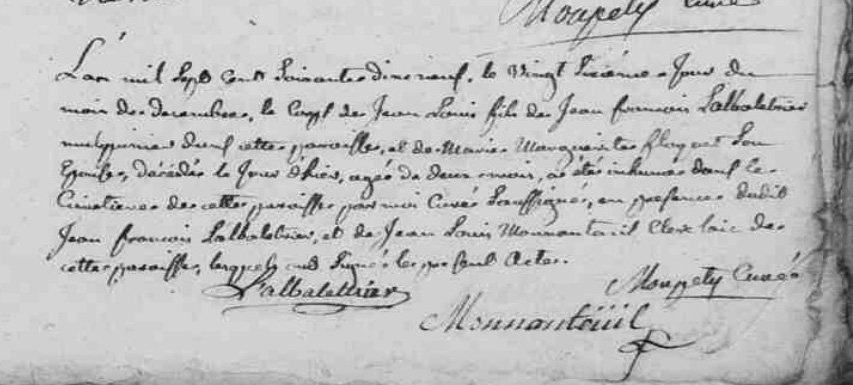 Moupety Curé
L'an mil Sept Cent Soixante dix neuf, le Vingt Sixième Jour du
mois de decembre, le Corps de Jean Louis fils de Jean francois Lalbaletrier
de cette paroisse, et de Marie Marguerite flaquet Son
Epouse, décédé le Jour d'hier, agé de deux mois, a été inhumé dans le
Cimetiere de cette paroisse par moi Curé Soussigné, en presence dudit
Jean francois Lalbaletrier, et de Jean Louis Monnanteuil Clerc laic de
cette paroisse, lesquels ont Signé le present Acte.
L'albalettrier
Moupety Curé
Monnanteüil